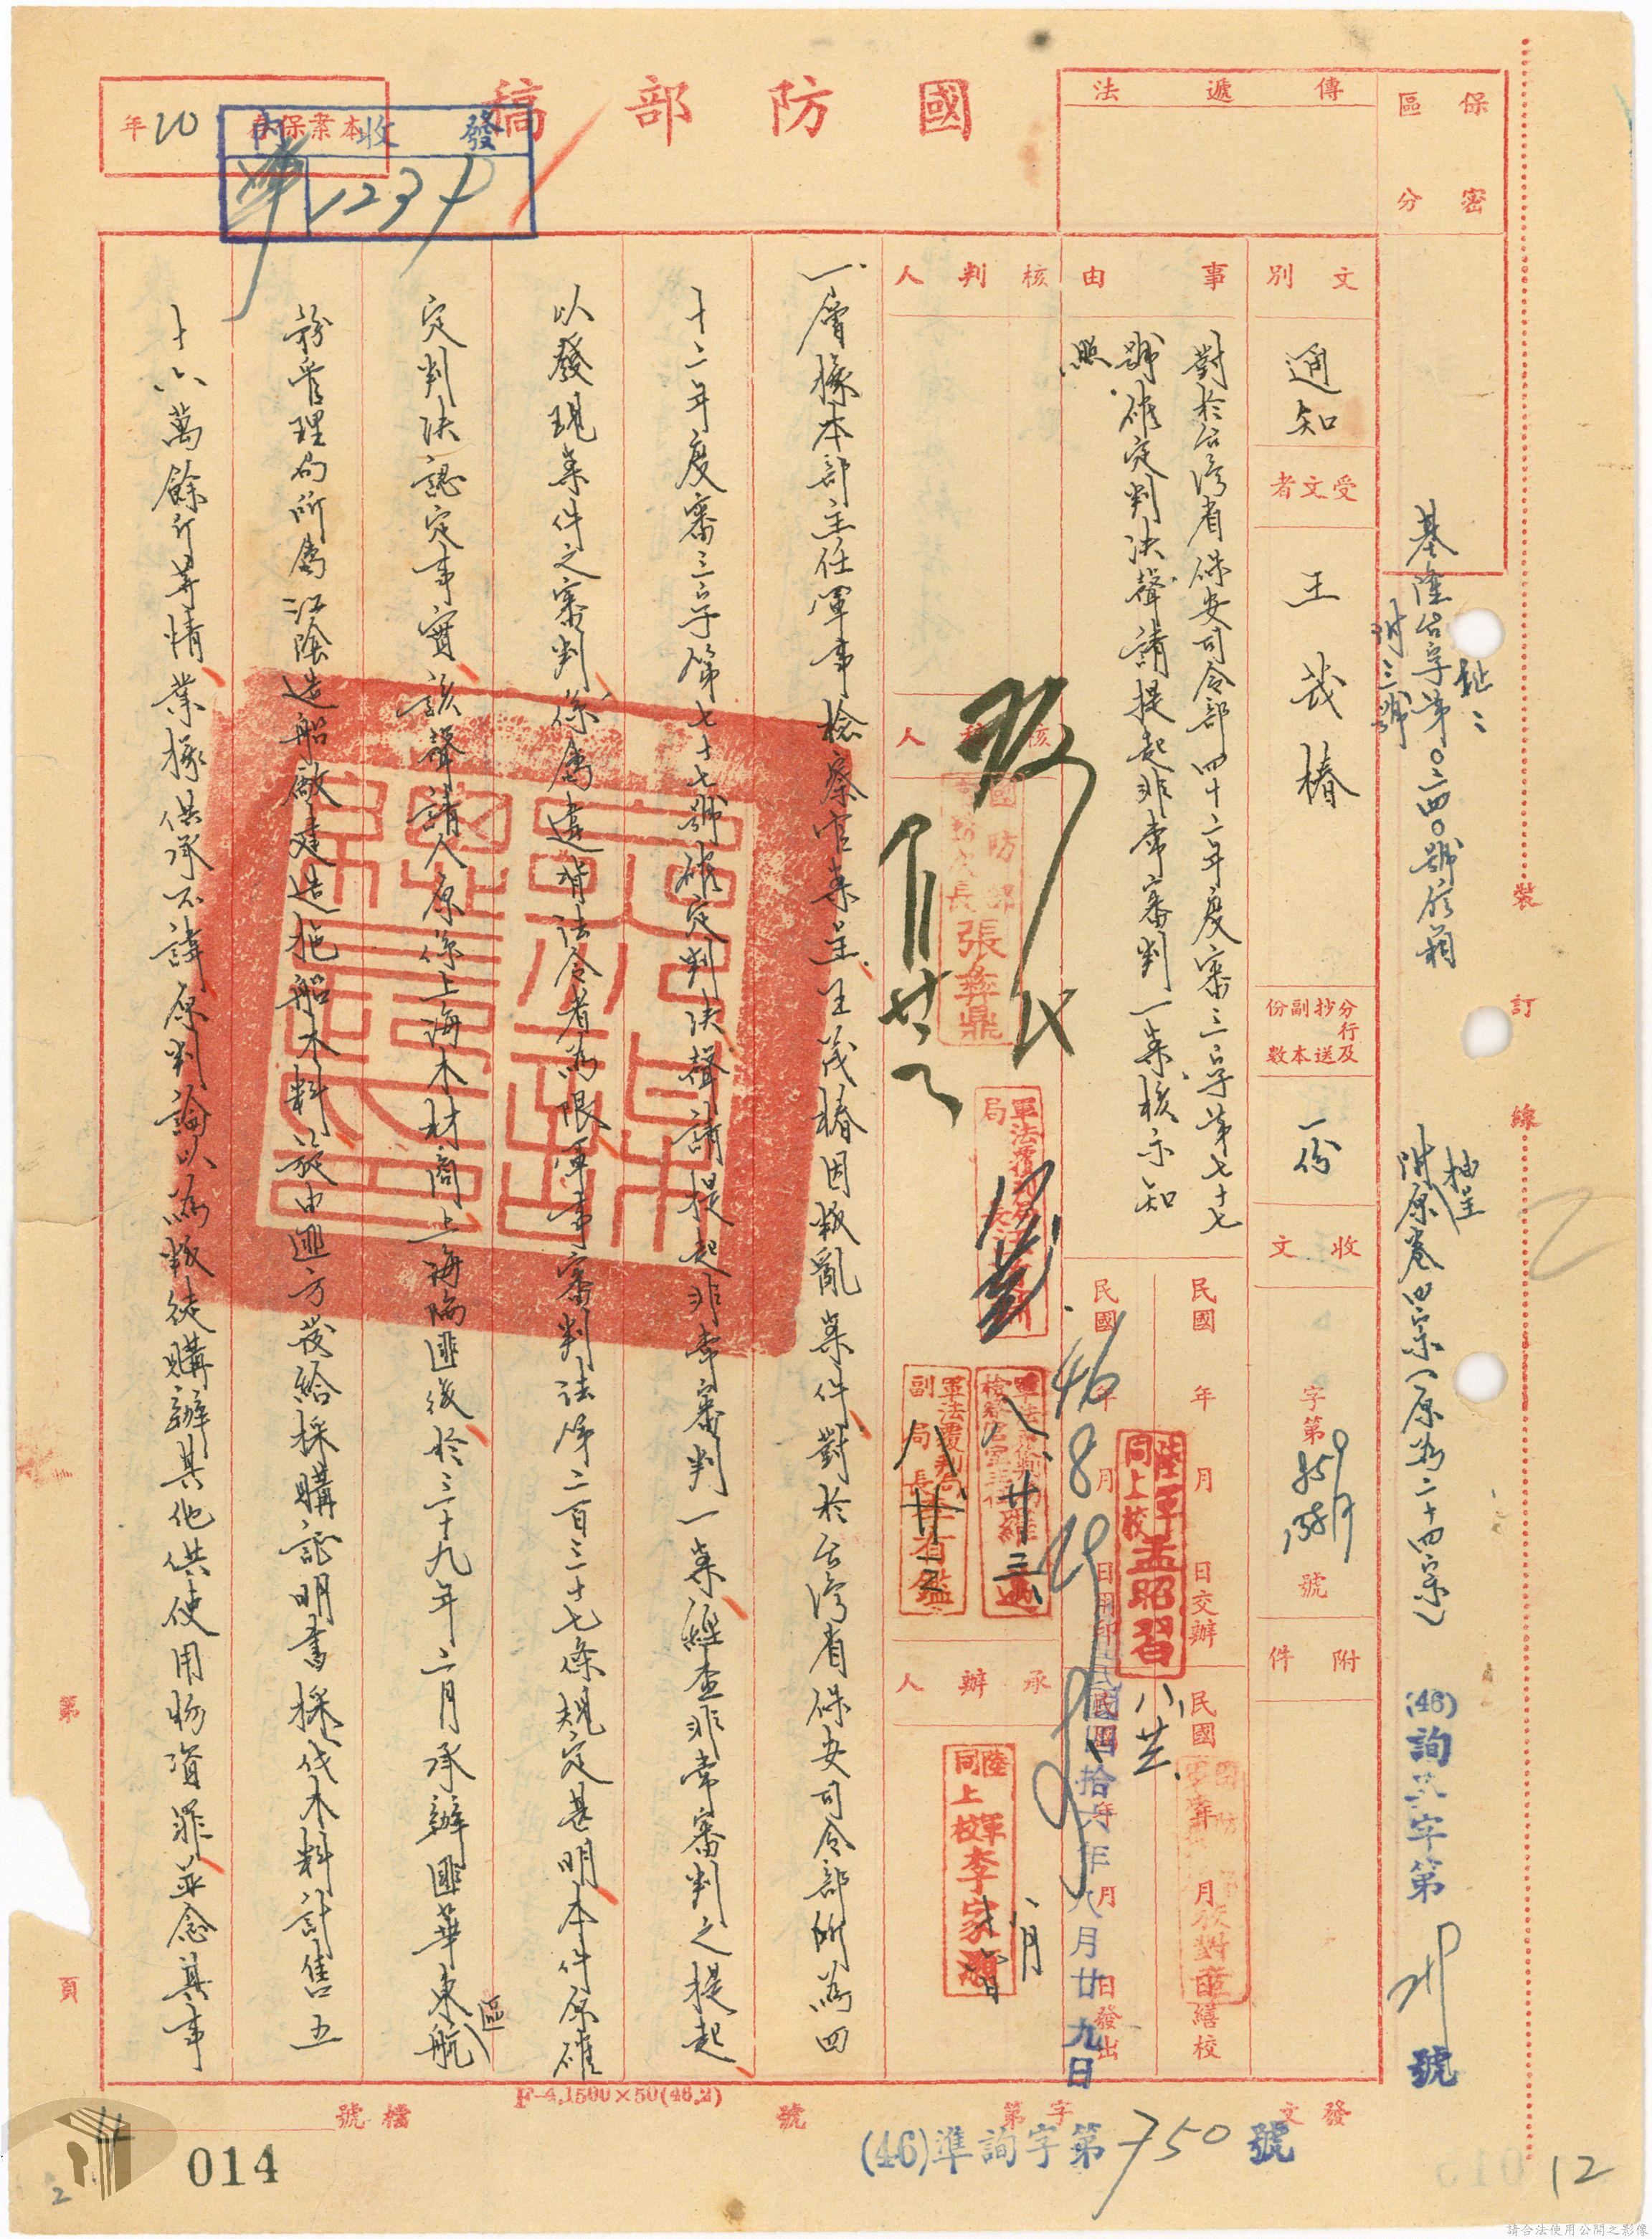 保密
區分
傳遞法
國防部稿
本案保存
20年
發收
1237
文別
通知
受文者
王茂椿
分行及抄送副本份數
一份
收文
字第
號
附件
基隆台字第〇二四〇號信箱
附三號
附原卷四宗(原為二十四宗)
抽呈
(46)詢
字第
號
事由
對於台灣省保安司令部四十二年度審三字第七十七
號確定判決聲請提起非常審判一案核示知
照
民國 年 月 日交辦
民國46年8月 日用印
民國 年 月 日繕校
民國 年 月 日發出
民國四拾六年八月廿九日
核判人
核稿人
承辦人
國防部
張彝鼎
軍法覆判局
軍法覆判局副局長
陸軍同上校孟昭習
陸軍同上校李家
八月
一、屬據本部主任軍事檢察官案呈王茂椿因叛亂案件對於台灣省保安司令部所為四
十二年度審三字第七十七號確定判決聲請提起非常審判一案經查非常審判之提起
以發現案件之審判係屬違背法令者為限軍事審判法第二百三十七條規定甚明本件原確
定判決認定事實該聲請人原係上海木材商上海陷匪後於三十九年二月承辦匪華東區航
務管理局所屬江陰造船廠建造拖船木料旋由匪方發給採購証明書採伐木料計售五
十六萬餘斤等情業據供承不諱原判論以為叛徒購辦其他供使用物資罪並念其事
裝
訂
線
第
頁
檔號
F-4.1500×50(46.2)
發文
字第
號
(46)準詢字第750號
014
12
2
請合法使用公開之影像